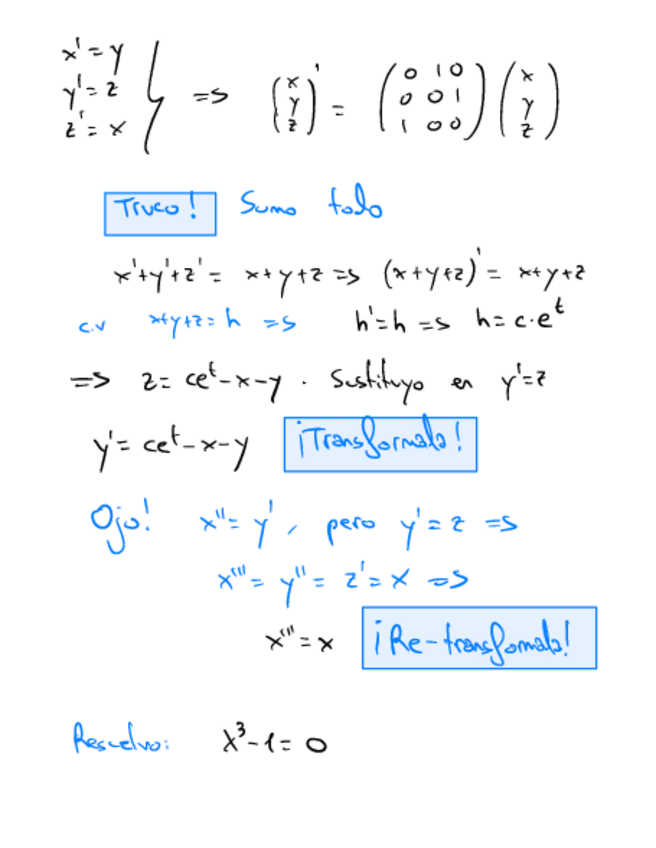 x' = y
y' = z
z' = x } => (x y z)' = (0 1 0 0 0 1 1 0 0) (x y z)
Truco! Sumo todo
x'+y'+z' = x+y+z => (x+y+z)' = x+y+z
c.v x+y+z = h => h'=h => h = c·e^t
=> z = ce^t-x-y . Sustituyo en y'=z
y' = ce^t-x-y ¡Transformala!
Ojo! x''= y', pero y' = z =>
x''' = y'' = z' = x =>
x''' = x ¡Re-transformala!
Resuelvo: x³-1 = 0